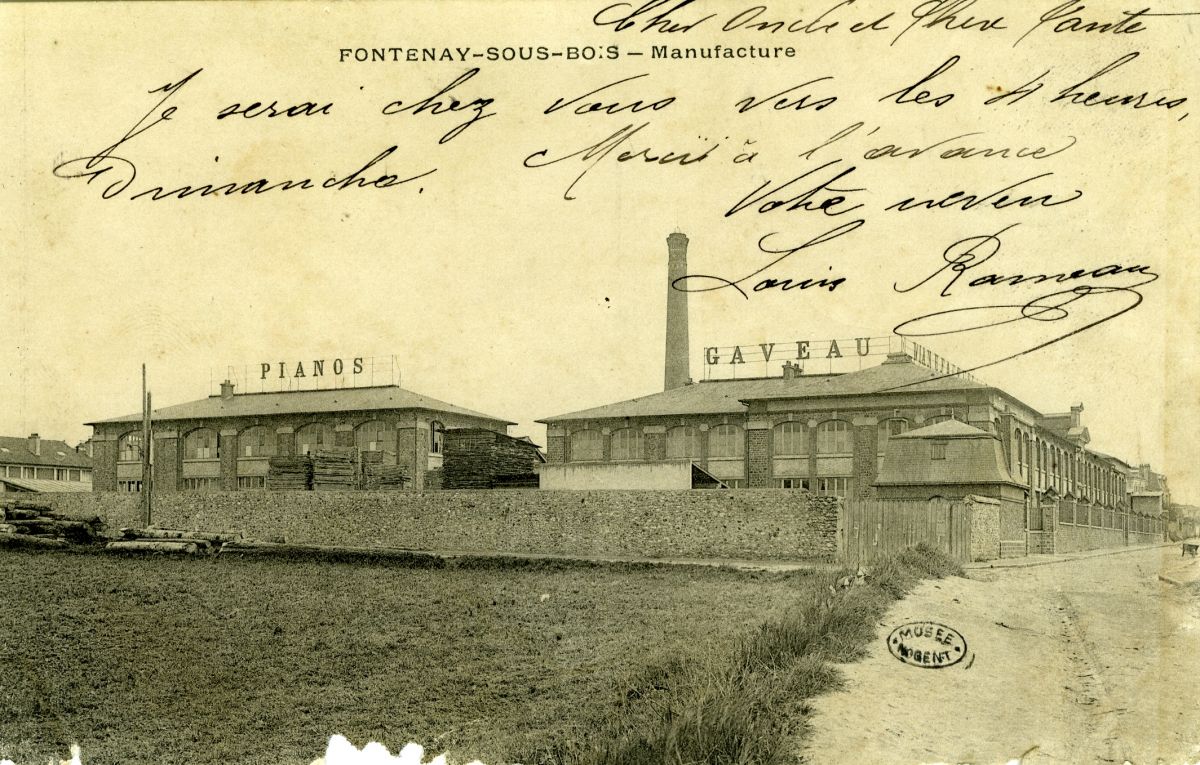 Cher Oncle et Chère Tante
FONTENAY-SOUS-BOIS — Manufacture
Je serai chez vous vers les 4 heures,
Dimanche. Merçi à l'avance
Votre neveu
Louis Rameau
PIANOS
GAVEAU
MUSEE
NOGENT